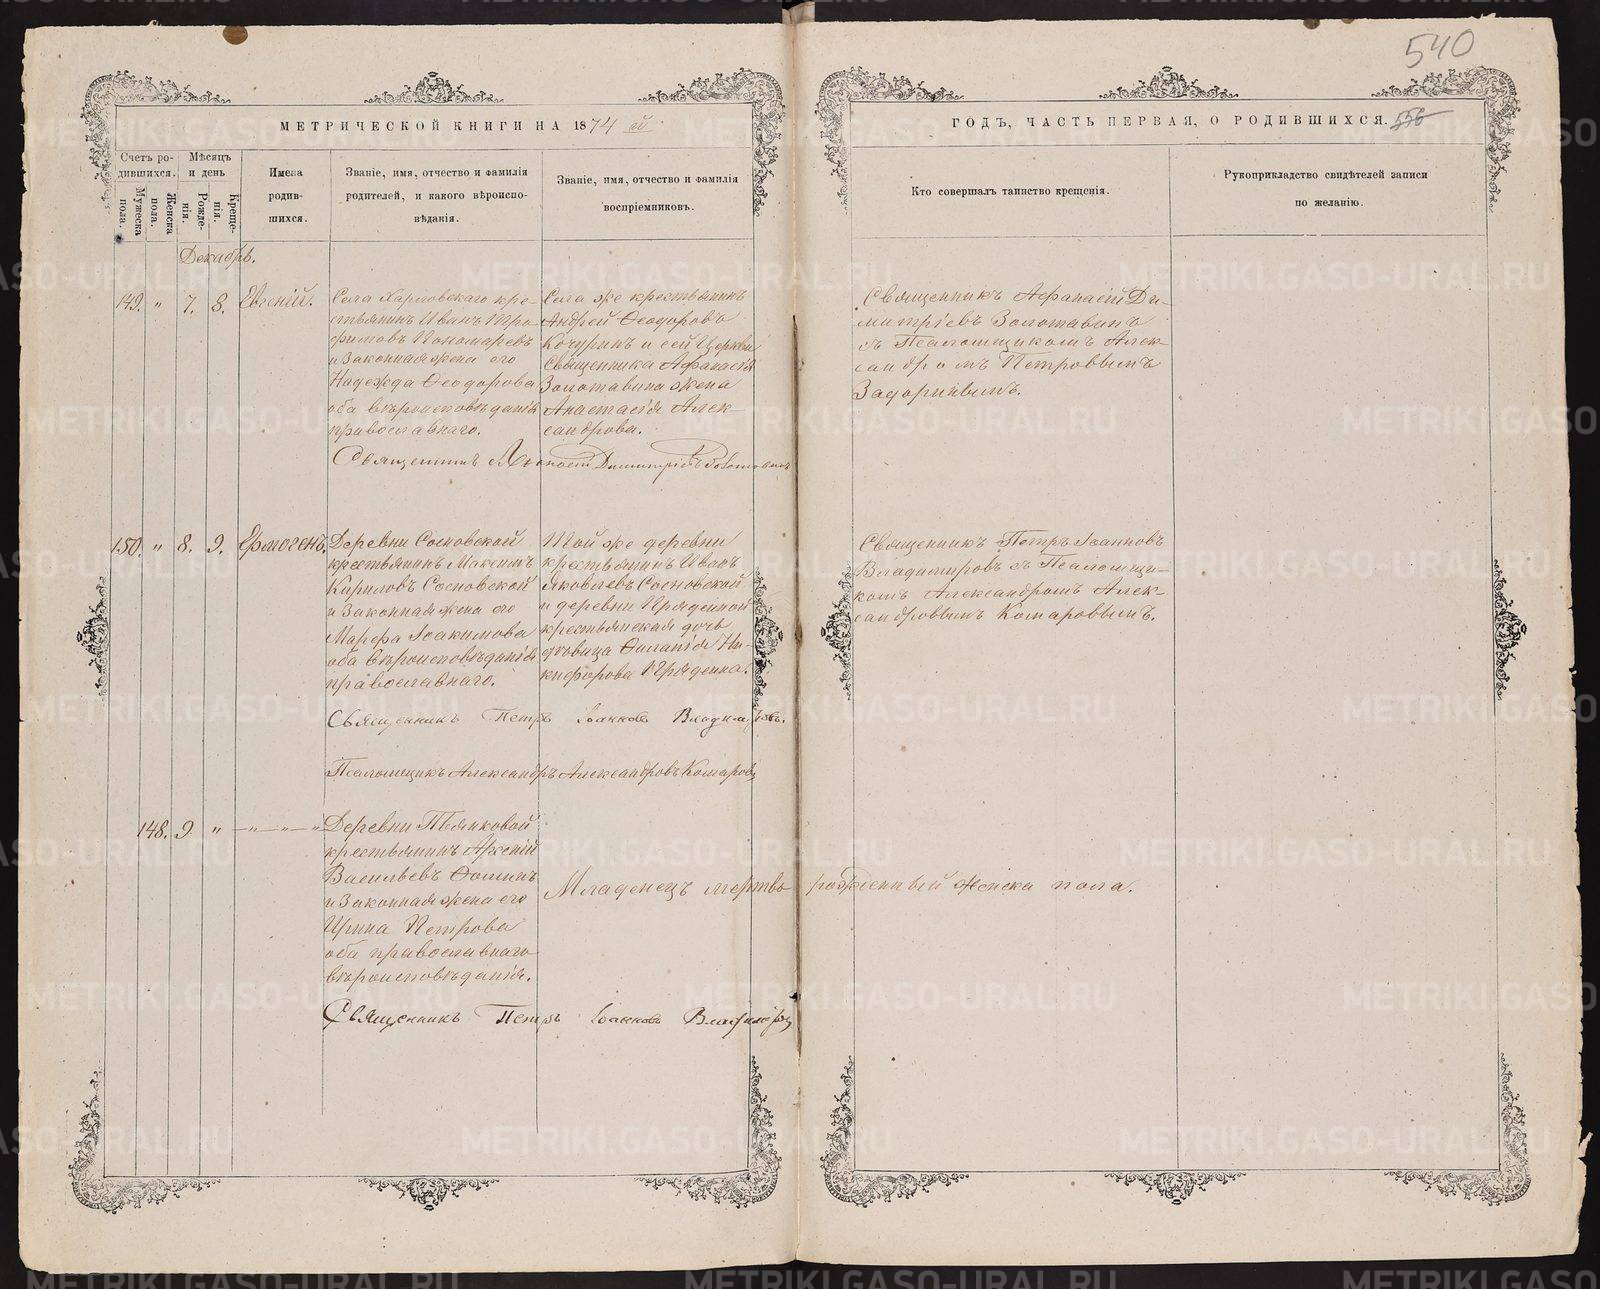 540
МЕТРИЧЕСКОЙ КНИГИ НА 1874 ый
ГОДЪ, ЧАСТЬ ПЕРВАЯ, О РОДИВШИХСЯ. 536
Счетъ ро-
дившихся.
Мужеска
пола.
Женска
пола.
Мѣсяцъ
и день
Рожде-
нія.
Креще-
нія.
Имена
родив-
шихся.
Званіе, имя, отчество и фамилія
родителей, и какого вѣроиспо-
вѣданія.
Званіе, имя, отчество и фамилія
воспріемниковъ.
Кто совершалъ таинство крещенія.
Рукоприкладство свидѣтелей записи
по желанію.
Декабрь.
149. " 7. 8. Евгеній.
Села Харловскаго кре-
стьянинъ Иванъ Тро-
фимовъ Пономаревъ
и законная жена его
Надежда Ѳеодорова
оба вѣроисповѣданія
православнаго.
Села же крестьянинъ
Андрей Ѳеодоровъ
Кочуринъ и сей Церкви
Священника Афанасія
Золотавина жена
Анастасія Алек-
сандрова.
Священникъ Афанасій Ди-
митріевъ Золотавинъ
съ Псаломщикомъ Алек-
сандромъ Петровымъ
Задоринымъ.
Священникъ Димитріевъ Золотавинъ
150. " 8. 9. Ермогенъ.
Деревни Сосновской
крестьянинъ Максимъ
Кириловъ Сосновской
и законная жена его
Марфа Іоакимова
оба вѣроисповѣданія
православнаго.
Той же деревни
крестьянинъ Иванъ
Яковлевъ Сосновской
и деревни Пряденной
крестьянская дочь
дѣвица Ни-
кифорова Прядеина.
Священникъ Петръ Іоанновъ
Владимировъ съ Псаломщи-
комъ Александромъ Алек-
сандровымъ Комаровымъ.
Священникъ Петръ Іоанновъ Владимировъ.
Псаломщикъ Александръ Александровъ Комаровъ
148. 9 " — " — " — "
Деревни
крестьянинъ Арсеній
Васильевъ Ѳоминъ
и законная жена его
Ирина Петрова
оба православнаго
вѣроисповѣданія.
Младенецъ мертво рожденный женска пола.
Священникъ Петръ Іоанновъ Владимировъ